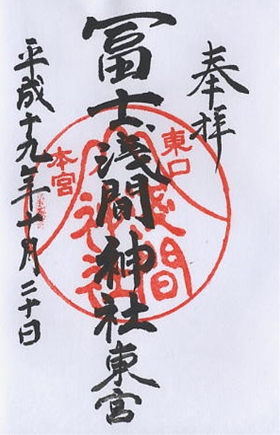 奉拝
冨士浅間神社東宮
平成十九年十月二十日
東口
本宮
浅間
神社